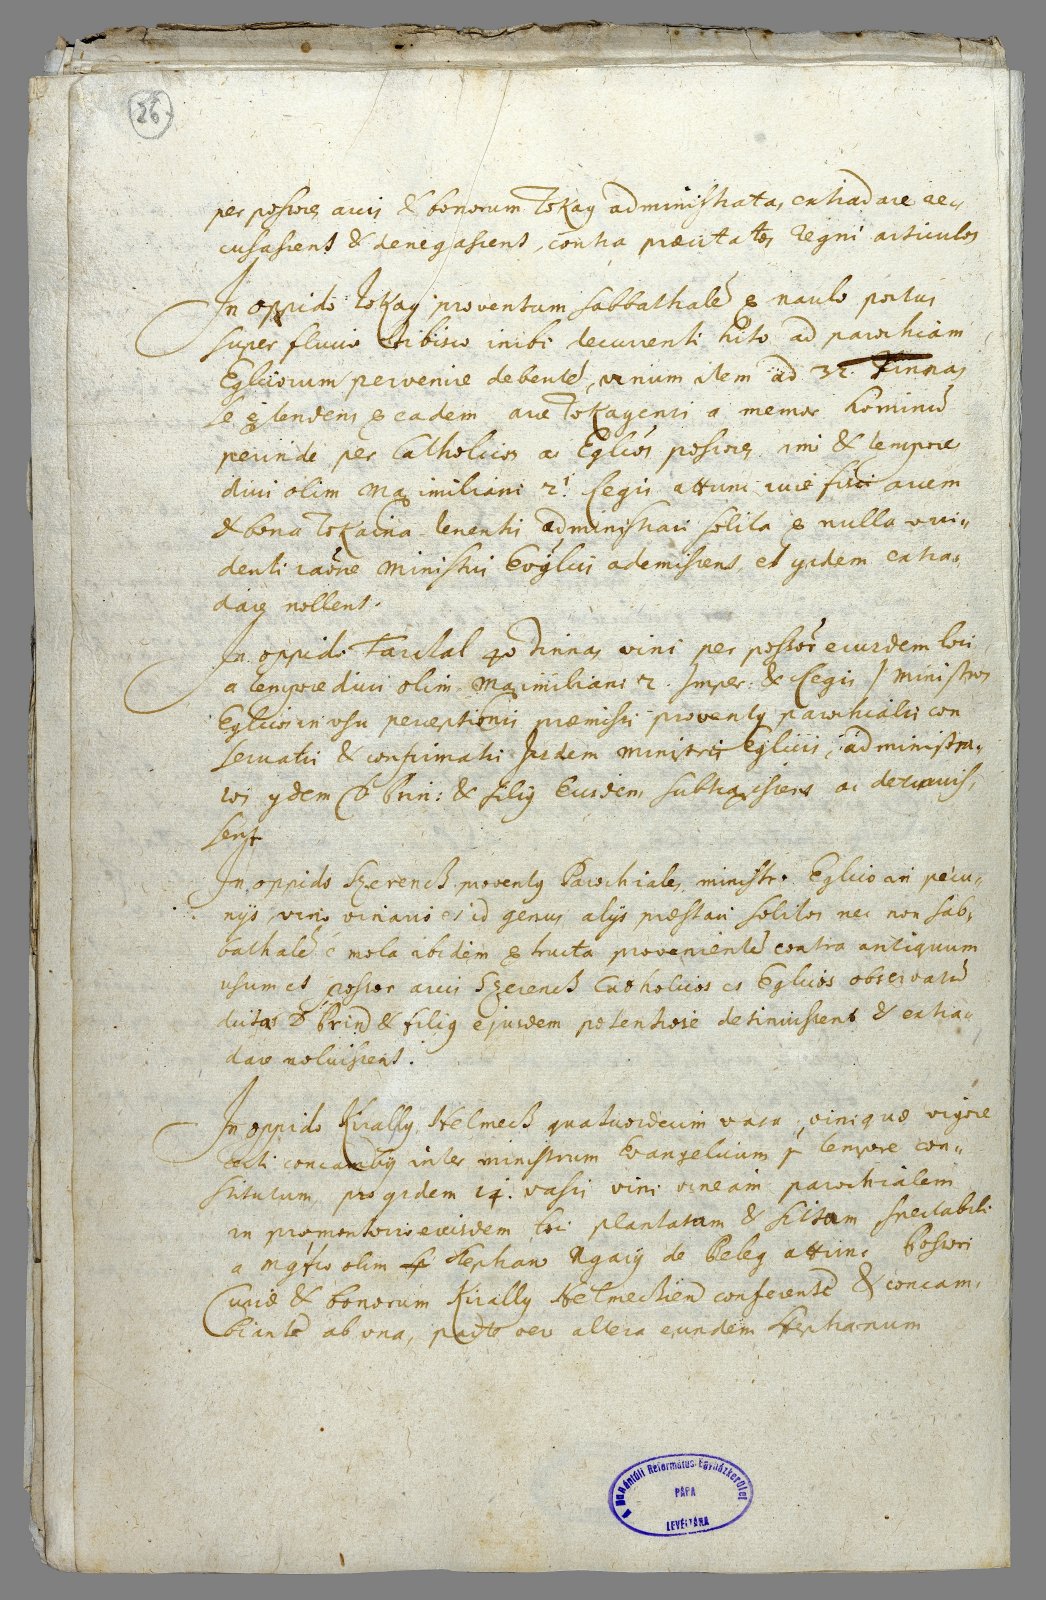 26
per possores arcis & bonorum Tokay administrata, extradare re-
cusassent & denegassent, contra præcitatos Regni articulos
In oppido Tokay proventum sabbathalē e naulo portus
super fluvio Tibisco inibi decurrenti hito ad parochiam
Egliciorum pervenire debentē, vinum item ad 32. Tinnas
se extendens ex eadem arce Tokayensi a memor hominū
perinde per Catholicos ac Eglicos possores imi & tempore
divi olim Maximiliani 2i. Regis
& bona Tokaina tenenti administrari solita ex nulla evi-
denti raōne Ministris Evglicis ademissent, et ijdem extra-
dare nollent.
In oppido Tarczal 40 Tinnas vini per possor eiusdem loci
a tempore divi olim Maximiliani 2. Imper: & Regis / ministros
Eglicios in usu perceptionis præmissi proventus parochialis con
servatis & confirmatis Iisdem ministris Eglicis, administra-
tos ijdem D Prin: & filij Eiusdem subtraxissent ac detinuis-
sent
In oppido Szerencz proventus Parochiales, ministro Eglico in pecu-
nijs, vino vinario et id genus alijs præstari solitos nec non sab-
bathalē e mola ibidem extructa provenientē contra antiquum
usum et possor arcis Szerencz Catholicos et Eglicos observatū
dictas D Prind & filij ejusdem potentiose detinuissent & extra-
dare noluissent.
In oppido Kiraly Helmecz quatuordecim vasa vini quæ vigore
certi concambij inter ministrum Evangelicum p tempore con-
stitutum, pro ijsdem 14. vasis vini vineam parochialem
in promontorio eiusdem loci plantatam & sitam spectabili
a mgfco olim Stephano Ngarij de Beleg attunc Possori
Curiæ & bonorum Kiraly Helmeczien conferentē & concam-
biantē ab una, parte vero altera eundem Stephanum
A Dunántúli Református Egyházkerület
PÁPA
LEVÉLTÁRA